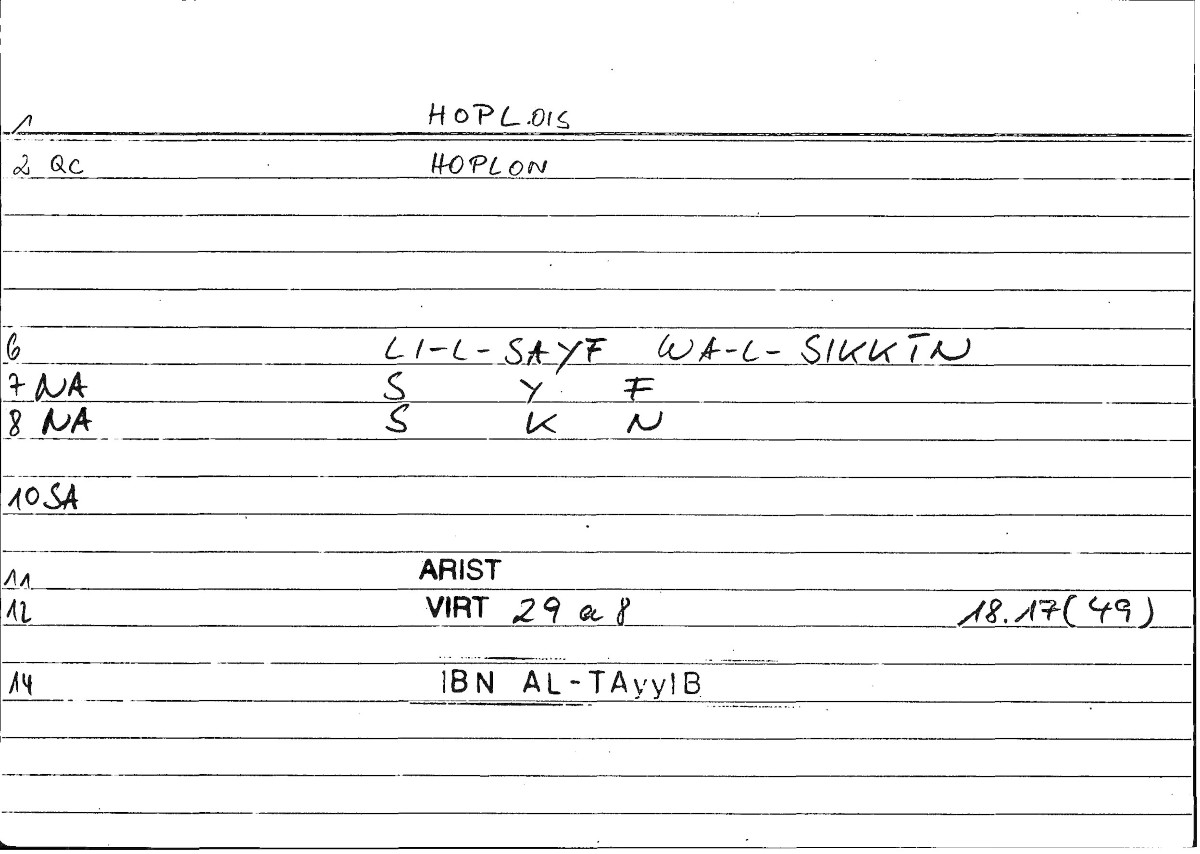 1 HOPL.OIS
2 QC HOPLON
6 LI-L-SAYF WA-L-SIKKĪN
7 NA S Y F
8 NA S K N
10 SA
11 ARIST
12 VIRT 29 a 8 18.17(49)
14 IBN AL-TAyyIB